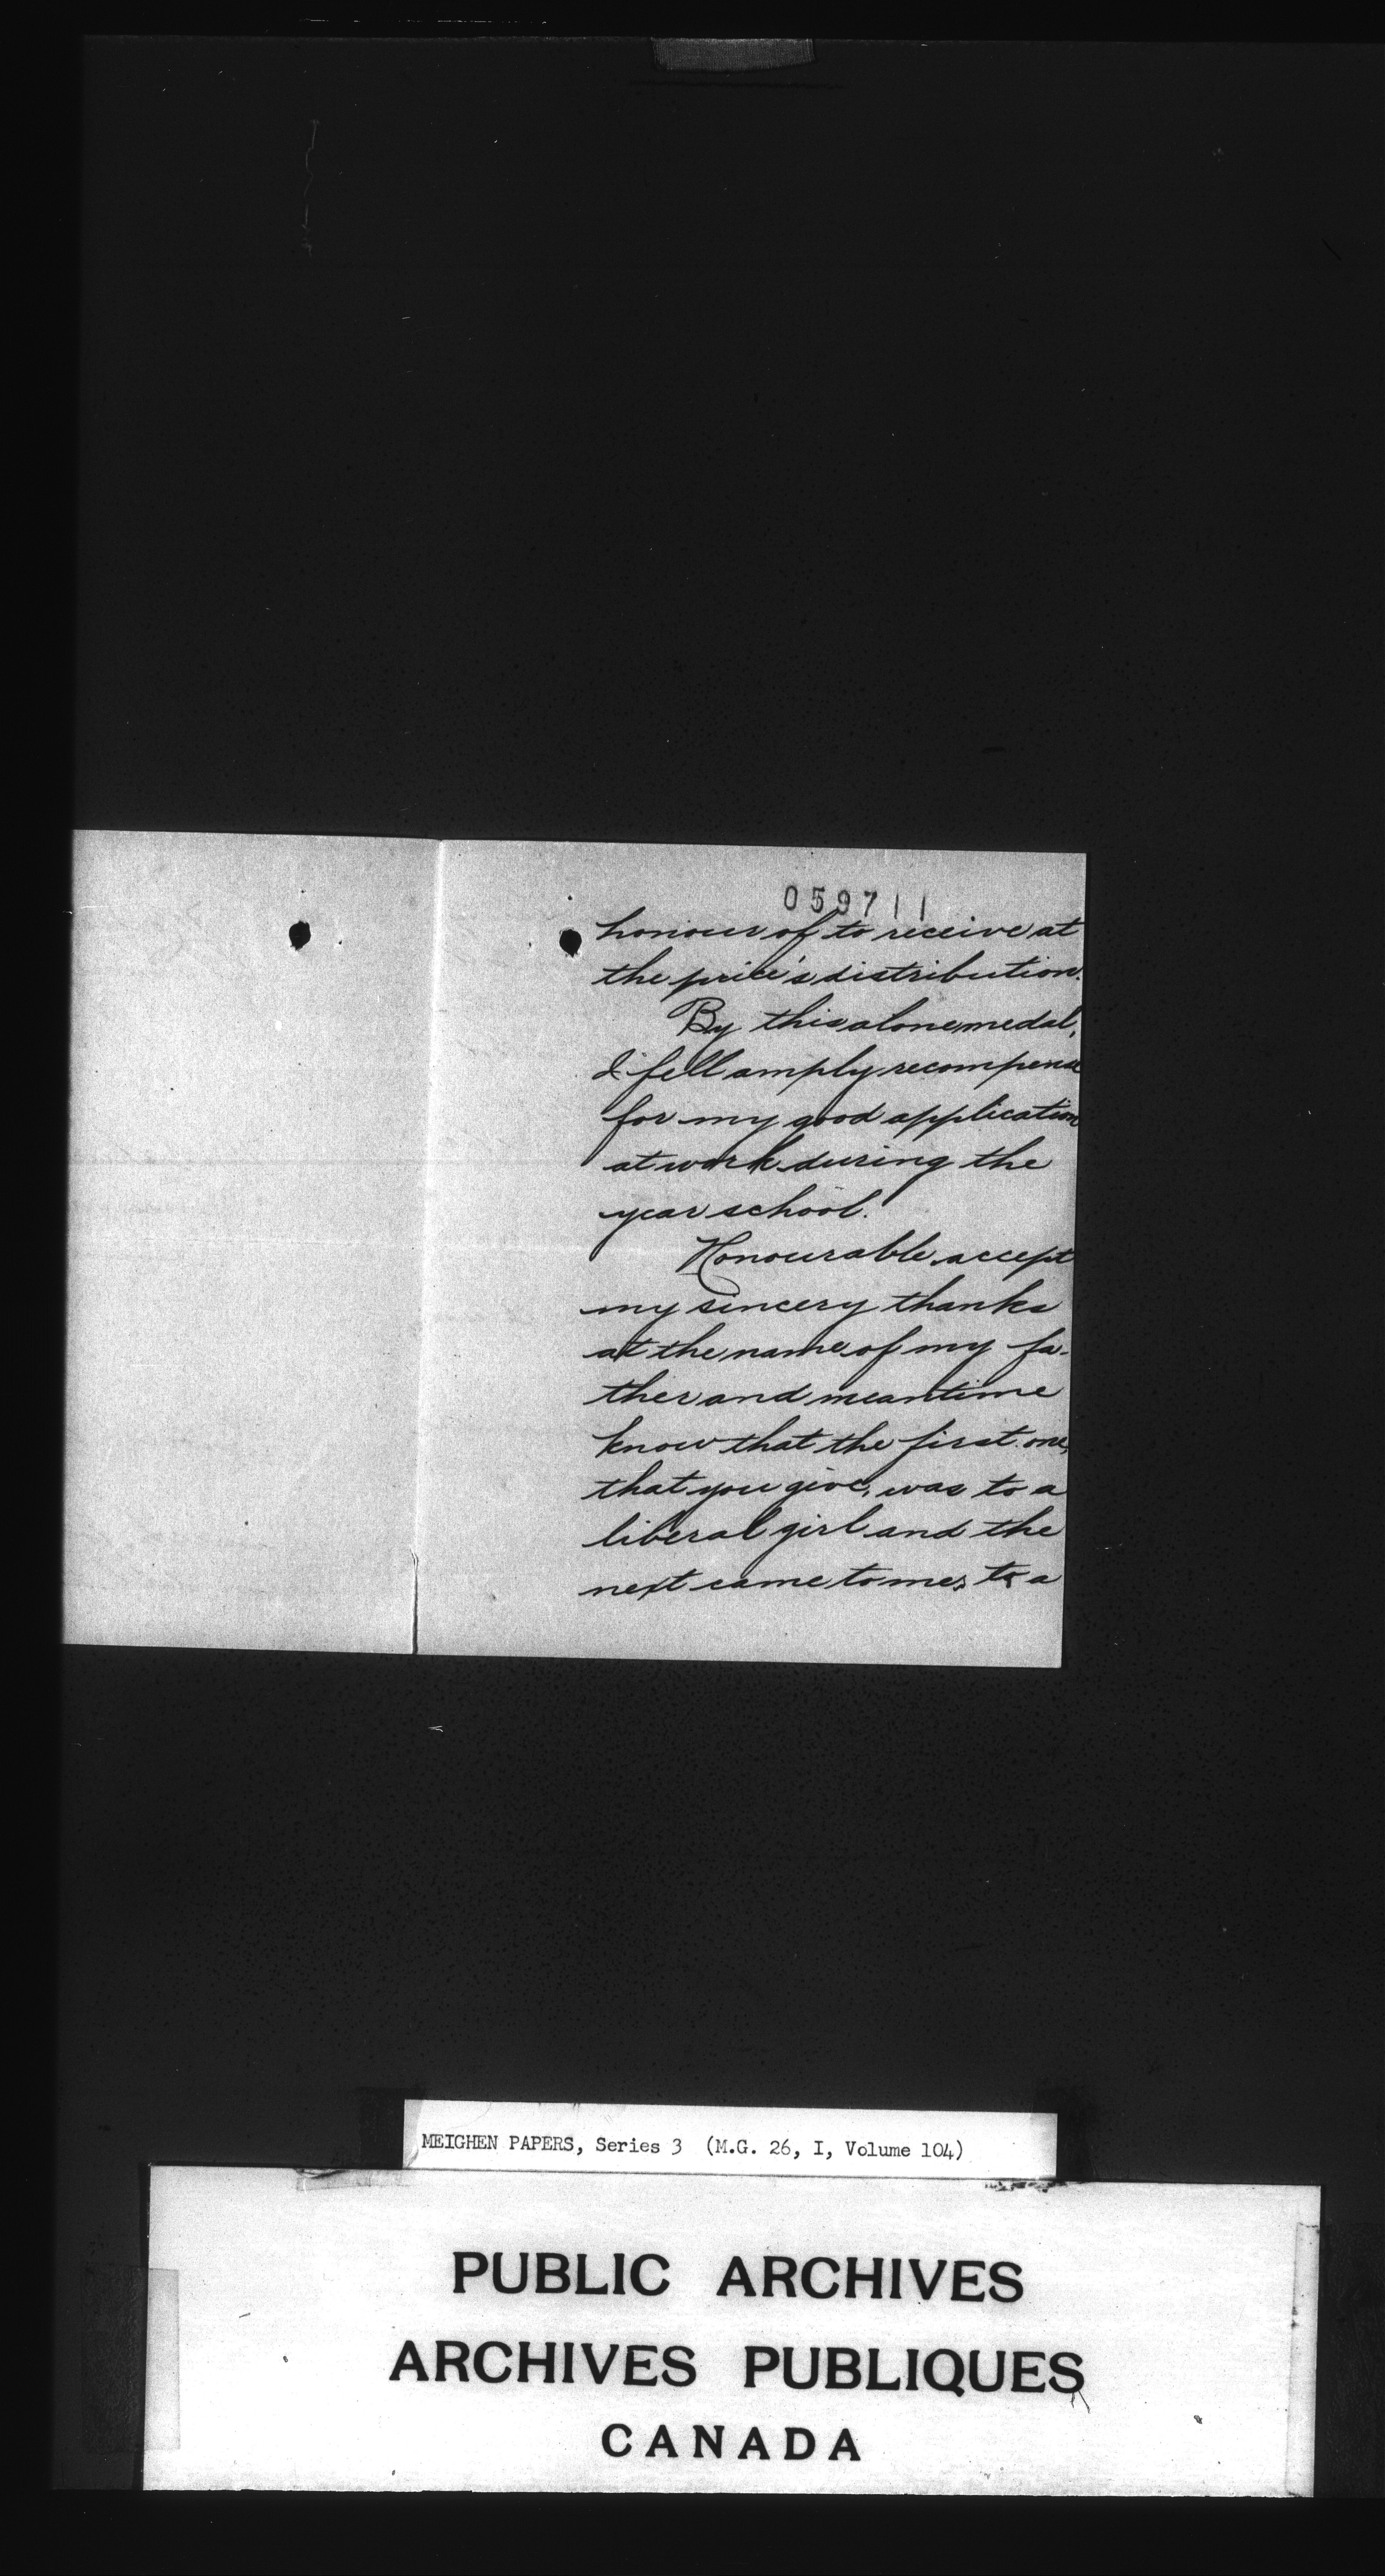 059711
honour of to receive at
the price's distribution.
By this alone medal,
I fell amply recompense
for my good application
at work during the
year school.
Honourable, accept
my sincery thanks
at the name of my fa-
ther and meantime
know that the first one,
that you give, was to a
liberal girl and the
next came to me, to a
MEIGHEN PAPERS, Series 3 (M.G. 26, I, Volume 104)
PUBLIC ARCHIVES
ARCHIVES PUBLIQUES
CANADA